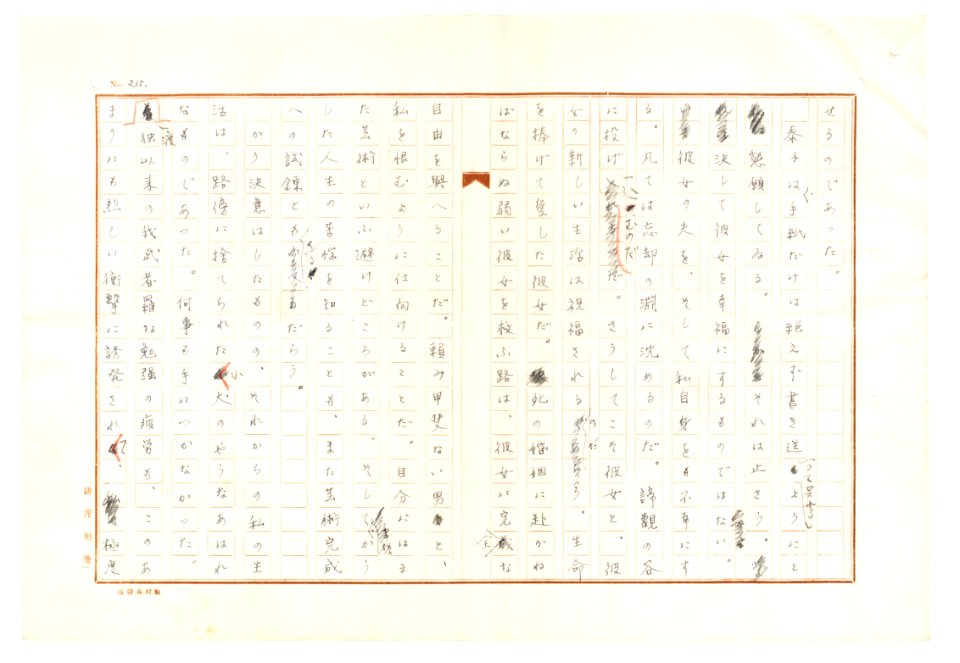 No. 235.
せるのであった。
泰子は手紙だけは絶えず書き送つて呉れるようにと
懇願してゐる。それは止さう。
決して彼女を幸福にするものではない。
彼女の夫を、そして私自身をも不幸にす
る。凡ては忘却の淵に沈めるのだ。諦観の谷
に投げ込むのだ。さうしてこそ彼女と、彼
女の新しい生活は祝福されるのだ。生命
を捧げて愛した彼女だ。死の婚姻に赴かね
ばならぬ弱い彼女を救ふ路は、彼女に完全な
自由を與へることだ。頼み甲斐ない男と、
私を恨むように仕向けることだ。自分にはま
た芸術といふ避けどころがある。そしてかう
した人生の苦悩を知ることも、また芸術完成
への試錬ともなるだらう。
かう決意はしたものの、それからの私の生
活は、路傍に捨てられた小犬のやうなあはれ
なものであった。何事も手につかなかった。
渡独以来の我武者羅な勉強の疲労も、このあ
まりにも烈しい衝撃に誘発されて、極度